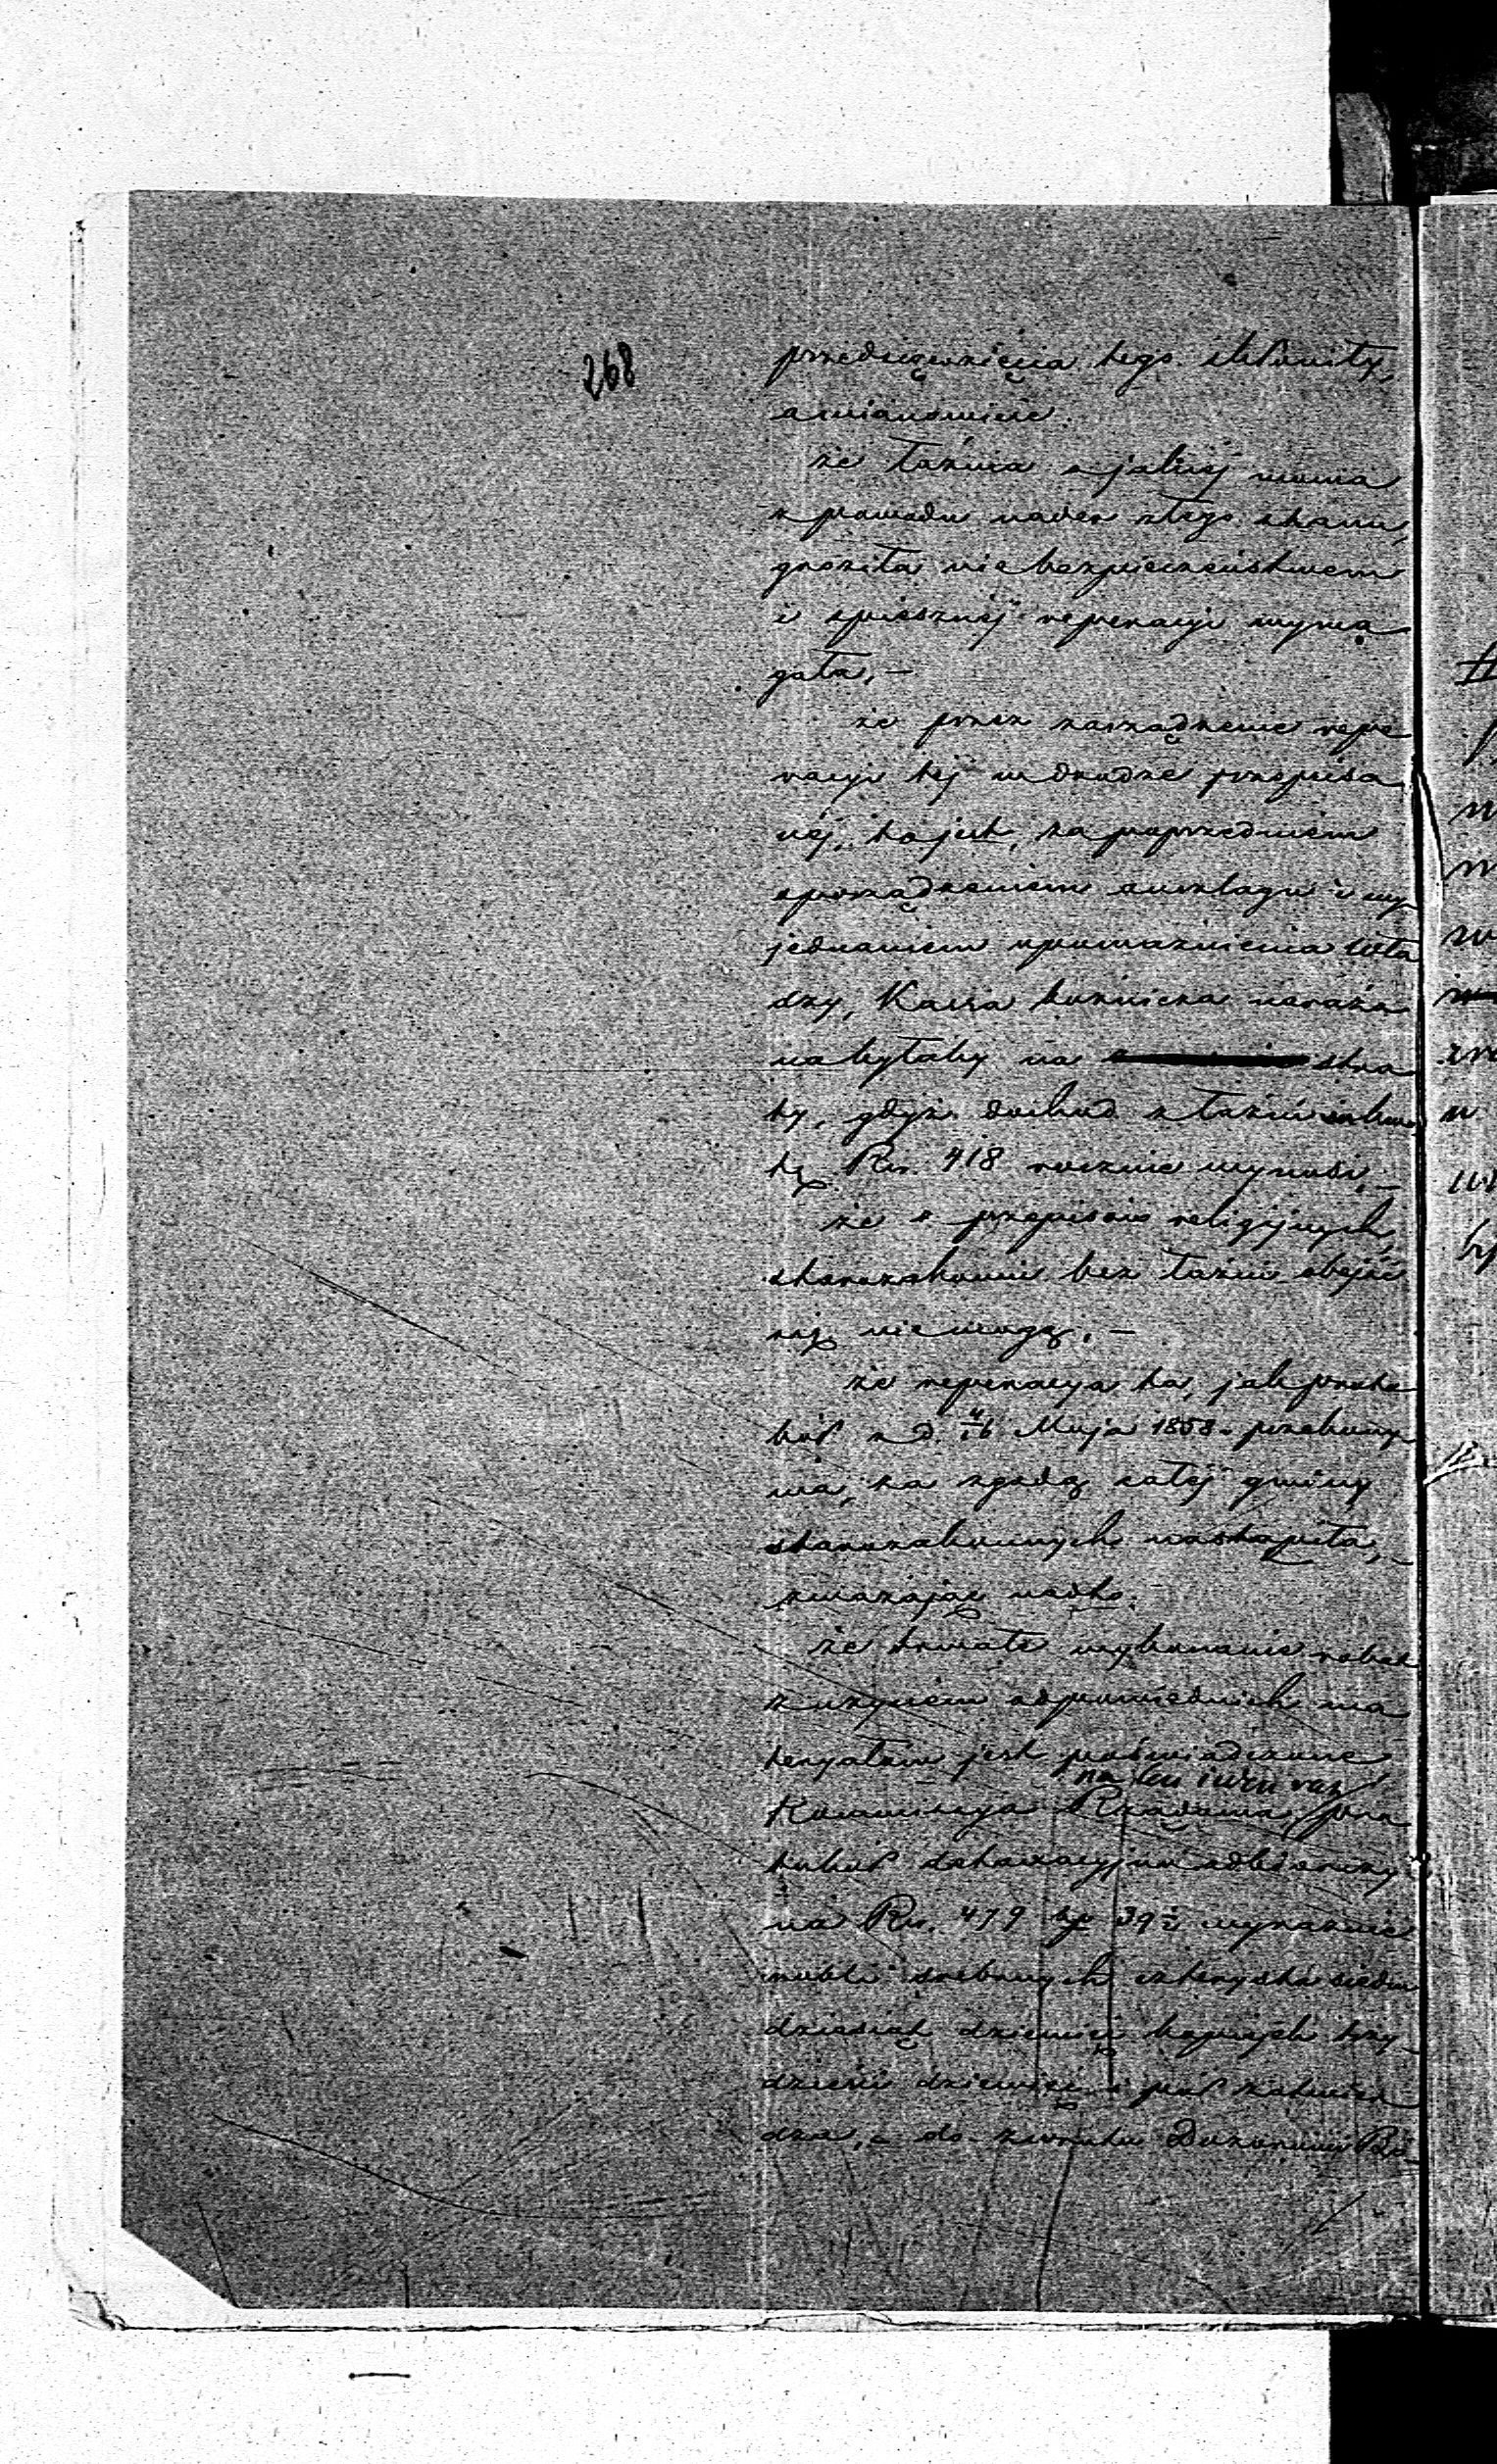 268
przedsięwzięcia tego skłoniły,
a mianowicie
że łaźnia o jakiej mowa
z powodu nader złego stanu,
groziła niebezpieczeństwem
i spiesznej reperacyi wyma
gała, –
że przez zarządzenie repe
racyi tej w drodze przepisa
nej, to jest, za poprzedniem
sporządzeniem anszlagu i wy
jednaniem upoważnienia Wła
dzy, Kassa bóżnicza narażo
na byłaby na stra
ty, gdyż dochód z łaźni
tę Rs. 418 rocznie wynosi, –
że z przepisów religijnych,
starozakonni bez łaźni obejść
się nie mogą, –
że reperacya ta, jak proto
kół z d. 4/16 Maja 1858 r. przekony
wa, za zgodą całej gminy
starozakonnych nastąpiła, –
zważając nadto.
że trwałe wykonanie robót
z użyciem odpowiednich ma
teryałów jest poświadczone,
na ten iwen raz
Kommissya Rządowa, pro
tokuł dotaxacyjno odbiorczy
na Rs. 479 kp 39½ wyraźnie
rubli srebrnych czterysta siedm
dziesiąt dziewięć kopiejek trzy
dzieści dziewięć i pół zatwier
dza, – do zwrotu Dozorowi Bó